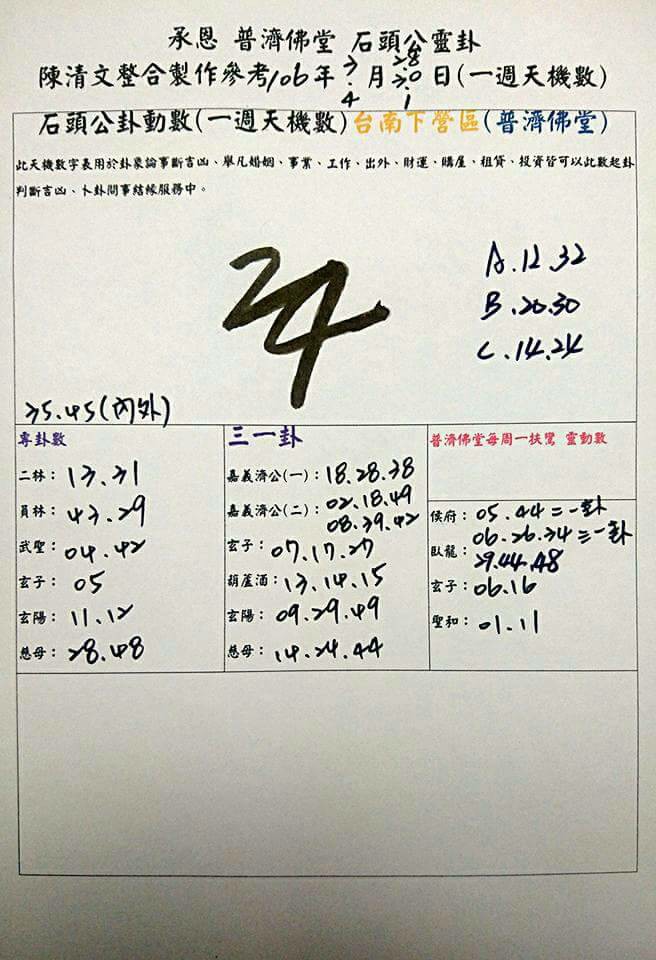 承恩 普濟佛堂 石頭公靈卦
陳清文整合製作參考106年 月 日(一週天機數)
28
30
4
1
石頭公卦動數(一週天機數)台南下營區(普濟佛堂)
此天機數字表用於卦象論事斷吉凶、舉凡婚姻、事業、工作、出外、財運、購屋、租貸、投資皆可以此數起卦
判斷吉凶、卜卦問事結緣服務中。
24
A.12.32
B.20.30
C.14.24
35.45(內外)
專卦數
二林：13.31
員林：43.29
武聖：04.42
玄子：05
玄陽：11.12
慈母：28.48
三一卦
嘉義濟公(一)：18.28.38
嘉義濟公(二)：02.18.49
08.39.42
玄子：07.17.27
葫蘆酒：13.14.15
玄陽：09.29.49
慈母：14.24.44
普濟佛堂每周一扶鸞 靈動數
侯府：05.44=一卦
06.26.34三一卦
臥龍：29.44.48
玄子：06.16
聖和：01.11